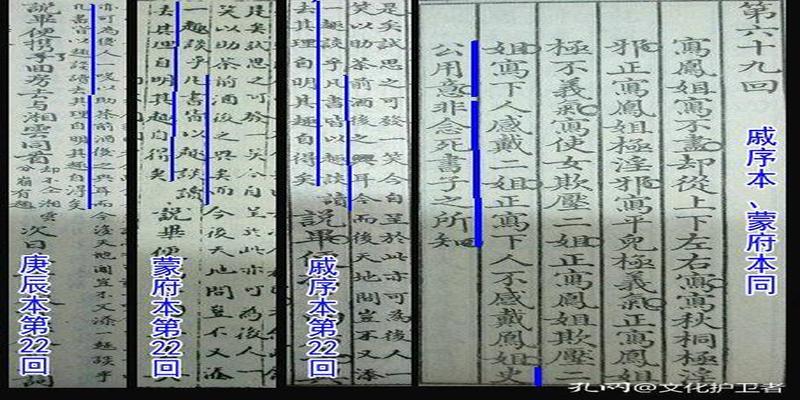 第六十九回
戚序本、蒙府本同
寫鳳姐寫不盡却從上下左右寫寫秋桐極淫
邪正寫鳳姐極淫邪寫平兒極義氣正寫鳳姐
極不義氣寫使女欺壓二姐正寫鳳姐欺壓二
姐寫下人感戴二姐正寫下人不感戴鳳姐史
公用意非念死書子之所知
是矣試思之可發一笑今自呈於此亦可為後人一
笑以助茶前酒後之興耳今而後天地間豈不又添
一趣談乎凡書皆以趣談讀
去其理自明其趣自得矣
說畢
戚序本第22回
是矣試思之可發一笑今自呈於此亦可為後人一
笑以助茶前酒後之興矣而今後天地間豈不又添
一趣談乎凡書皆以趣談讀
去其理自明其趣自得矣
說畢便
蒙府本第22回
亦可為後人一笑以助茶前酒後之興耳而今後天地間豈不又添一趣談乎
凡書皆以趣談讀去其理自明其趣自得矣
說畢便携手回房去与湘雲同看
次日
庚辰本第22回
孔网@文化护卫者